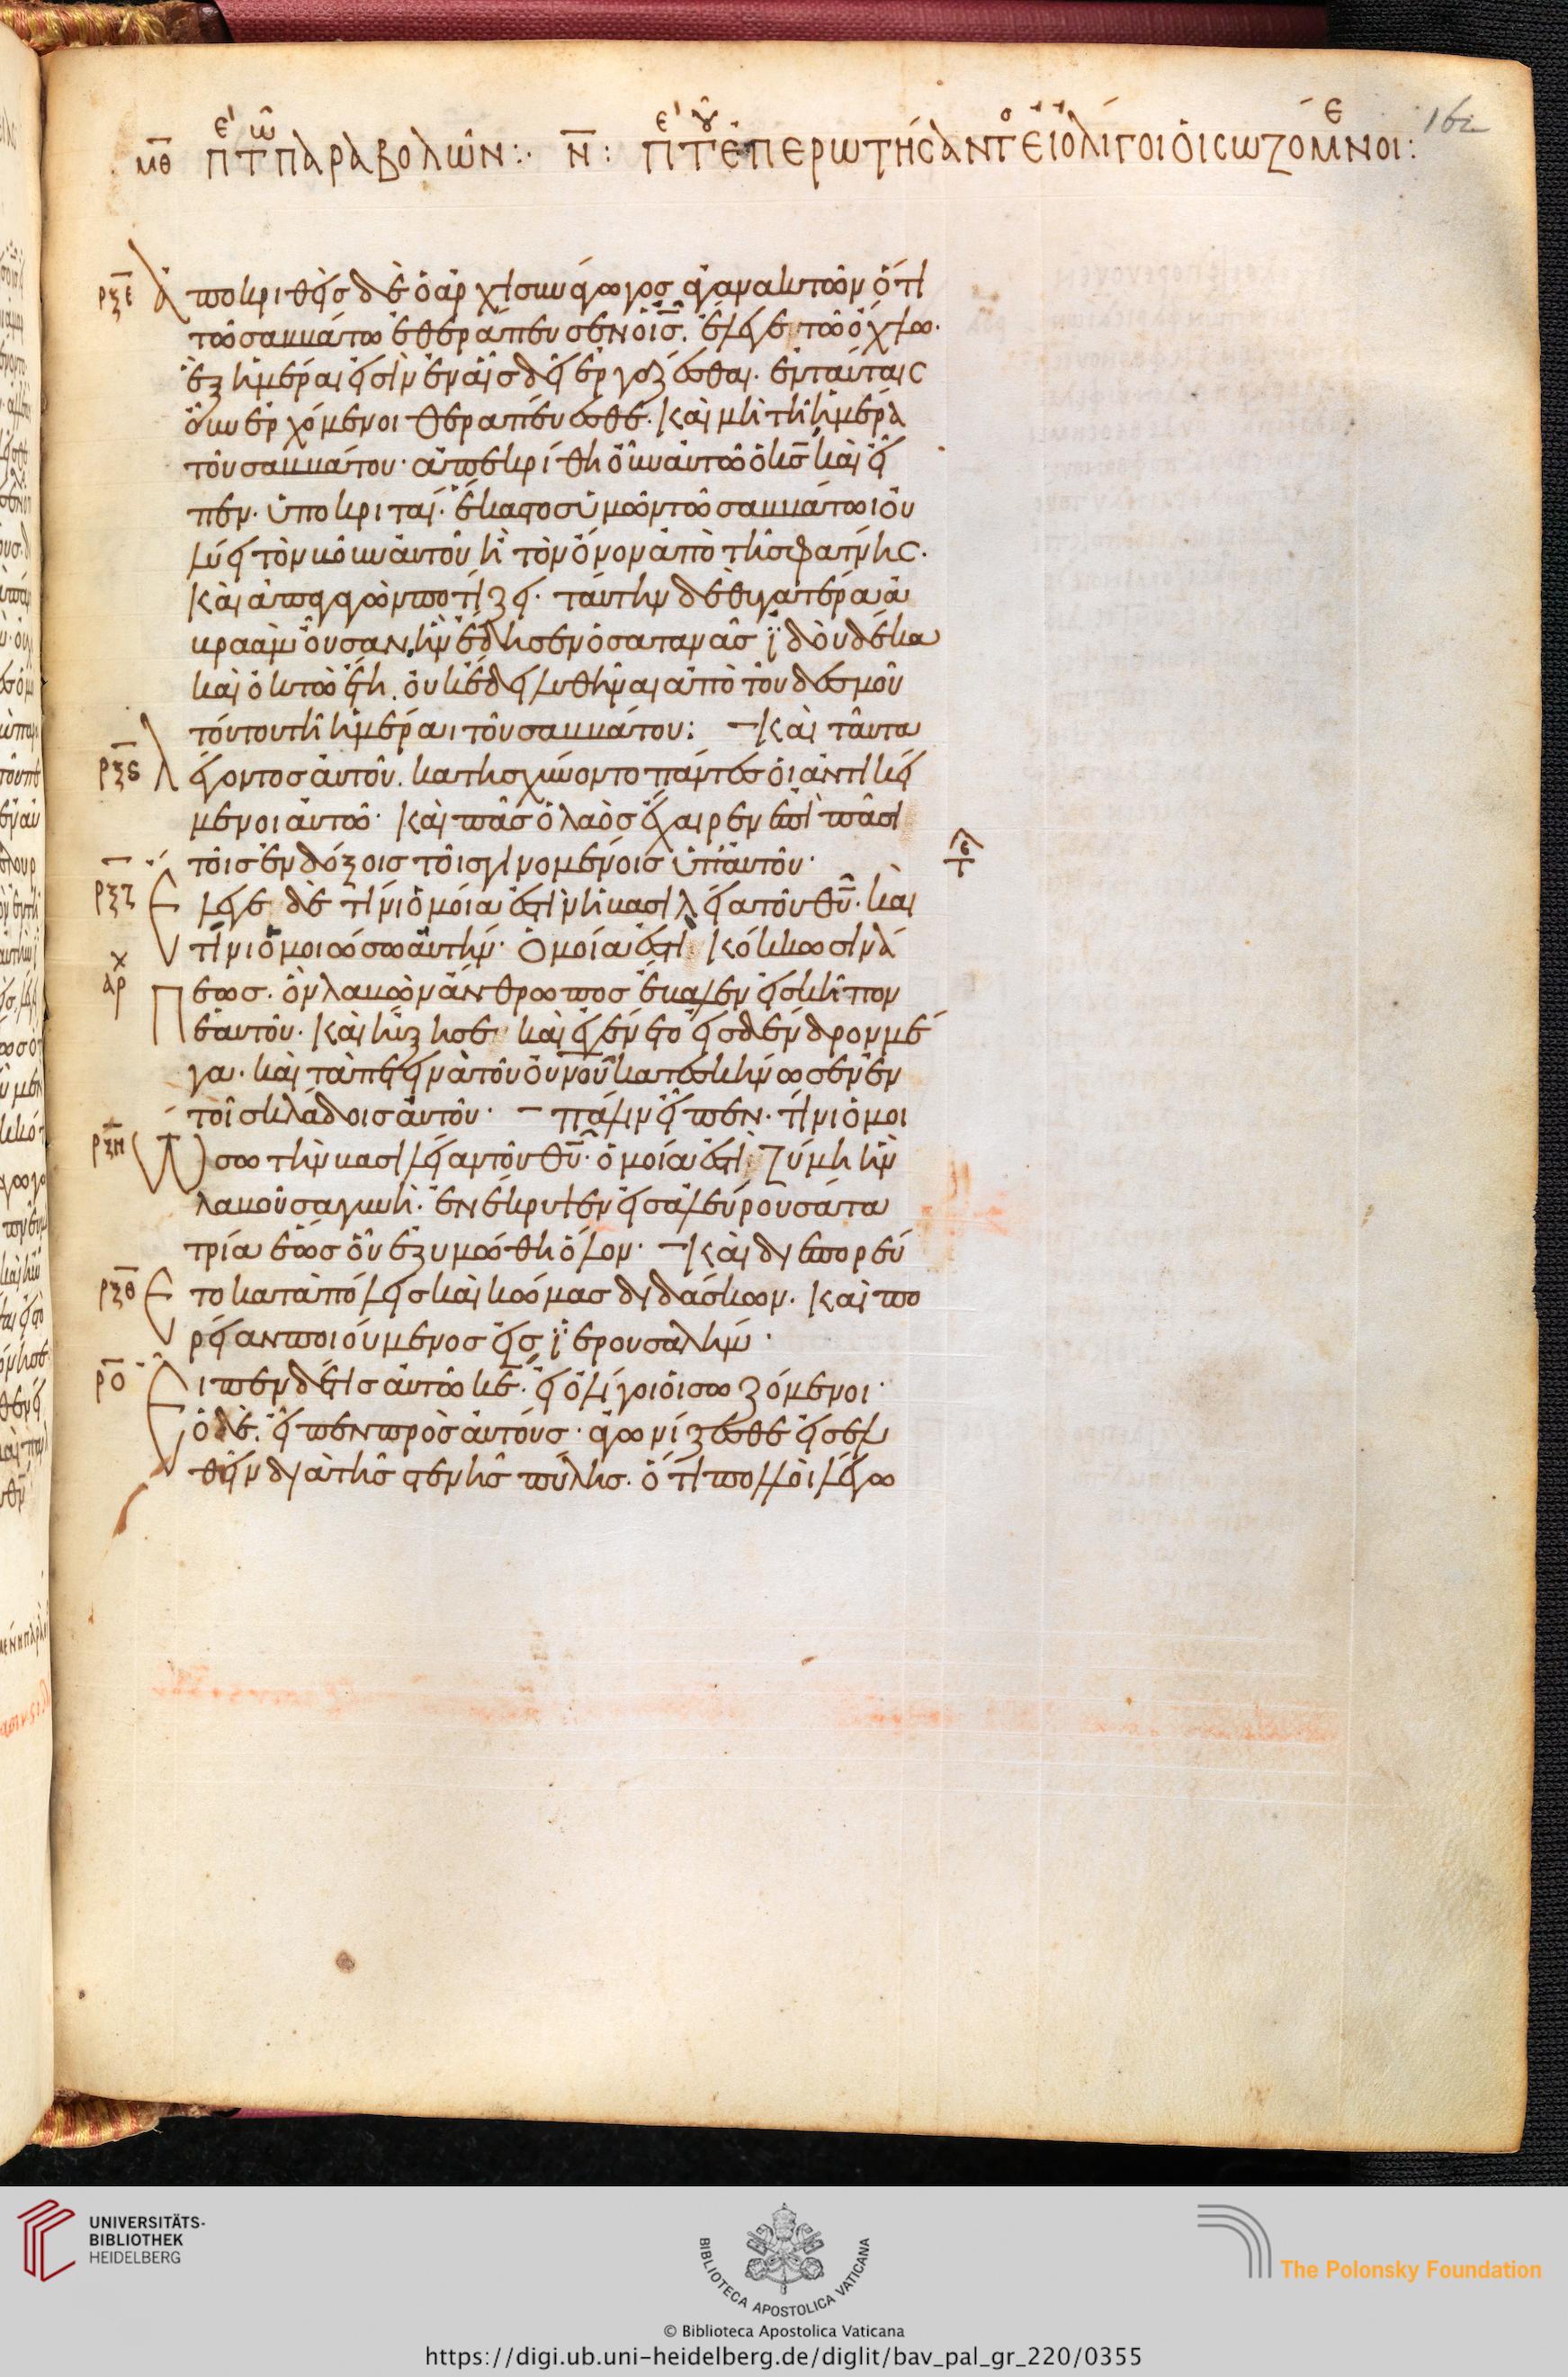 162
μθ πε τ παραβολῶν:· ν: πε τοῦ ἐπερωτήσαντος εἰ ὀλίγοι οἱ σωζόμενοι:
ρξε Ἀποκριθεὶς δὲ ὁ ἀρχισυνάγωγος ἀγανακτῶν ὅτι
τῶ σαββάτω ἐθεράπευσεν ὁ ις. ἔλεγε τῶ ὄχλω.
ἓξ ἡμέραι εἰσὶν ἐν αἷς δεῖ ἐργάζεσθαι. ἐν ταύταις
οὖν ἐρχόμενοι θεραπεύεσθε. καὶ μὴ τῆ ἡμέρα
τοῦ σαββάτου· ἀπεκρίθη οὖν αὐτῶ ὁ κς καὶ εἶ
πεν· ὑποκριταί. ἕκαστος ὑμῶν τῶ σαββάτωι οὐ
λύει τὸν βοῦν αὐτοῦ ἢ τὸν ὄνον ἀπὸ τῆς φάτνης.
καὶ ἀπαγαγὼν ποτίζει. ταύτην δὲ θυγατέρα ἀ
βραὰμ οὖσαν, ἣν ἔδησεν ὁ σατανᾶς ἰδοὺ δέκα
καὶ ὀκτὼ ἔτη. οὐκ ἔδει λυθῆναι ἀπὸ τοῦ δεσμοῦ
τούτου τῆ ἡμέραι τοῦ σαββάτου: – καὶ ταῦτα
ρξς λέγοντος αὐτοῦ. κατησχύνοντο πάντες οἱ ἀντικεί
μενοι αὐτῶ· καὶ πᾶς ὁ λαὸς ἔχαιρεν ἐπὶ πᾶσι
τοῖς ἐνδόξοις τοῖς γινομένοις ὑπ' αὐτοῦ· τε
ρξζ Ἔλεγε δὲ τίνι ὁμοία ἐστὶν ἡ βασιλεία τοῦ θυ. καὶ
τίνι ὁμοιώσω αὐτήν· Ὁμοία ἐστὶ κόκκω σινά
αρχ πεως. ὃν λαβὼν ἄνθρωπος ἔβαλεν εἰς κῆπον
ἑαυτοῦ. καὶ ηὔξησε καὶ ἐγένετο εἰς δένδρον μέ
γα. καὶ τὰ πετεινὰ τοῦ ουνου κατεσκήνωσεν ἐν
τοῖς κλάδοις αὐτοῦ· – πάλιν εἶπεν. τίνι ὁμοι
ρξη ώσω τὴν βασιλείαν τοῦ θυ· ὁμοία ἐστὶ ζύμη ἣν
λαβοῦσα γυνὴ. ἐνέκρυψεν εἰς ἀλεύρου σάτα
τρία ἕως οὗ ἐζυμώθη ὅλον· – καὶ διεπορεύ
ρξθ Ετο κατὰ πόλεις καὶ κώμας διδάσκων. καὶ πο
ρείαν ποιούμενος εἰς ἱερουσαλήμ·
ρο Εἶπεν δέ τις αὐτῶ κε. εἰ ὀλίγοι οἱ σωζόμενοι·
ὁ δὲ. εἶπεν πρὸς αὐτούς· ἀγωνίζεσθε εἰσελ
θεῖν διὰ τῆς στενῆς πύλης. ὅτι πολλοὶ λέγω
UNIVERSITÄTS-
BIBLIOTHEK
HEIDELBERG
BIBLIOTECA APOSTOLICA VATICANA
The Polonsky Foundation
© Biblioteca Apostolica Vaticana
https://digi.ub.uni-heidelberg.de/diglit/bav_pal_gr_220/0355